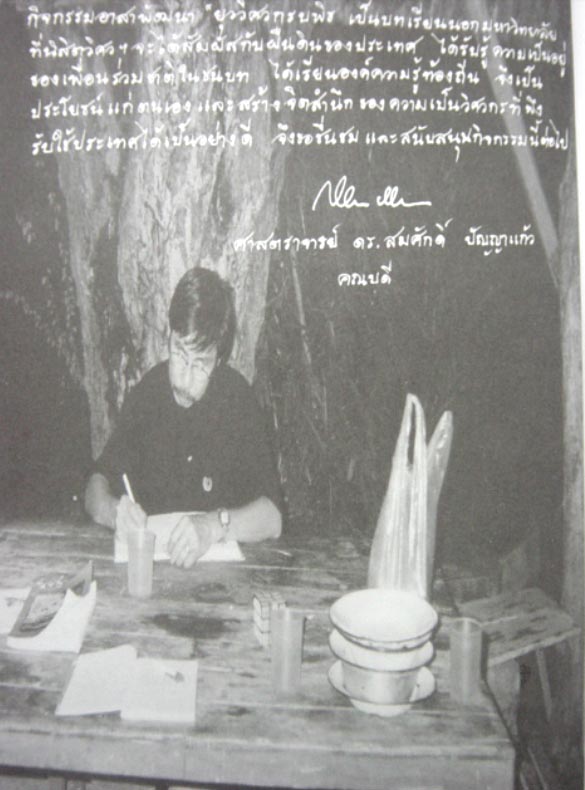 กิจกรรมอาสาพัฒนา "ยุววิศวกรบพิธ เป็นบทเรียนนอกมหาวิทยาลัย
ที่นิสิตวิศวฯ จะได้สัมผัสกับผืนดินของประเทศ ได้รับรู้ความเป็นอยู่
ของเพื่อนร่วมชาติในชนบท ได้เรียนองค์ความรู้ท้องถิ่น จึงเป็น
ประโยชน์แก่ตนเอง และสร้างจิตสำนึกของความเป็นวิศวกรที่พึง
รับใช้ประเทศได้เป็นอย่างดี จึงขอชื่นชม และสนับสนุนกิจกรรมนี้ต่อไป
ศาสตราจารย์ ดร. สมศักดิ์ ปัญญาแก้ว
คณบดี